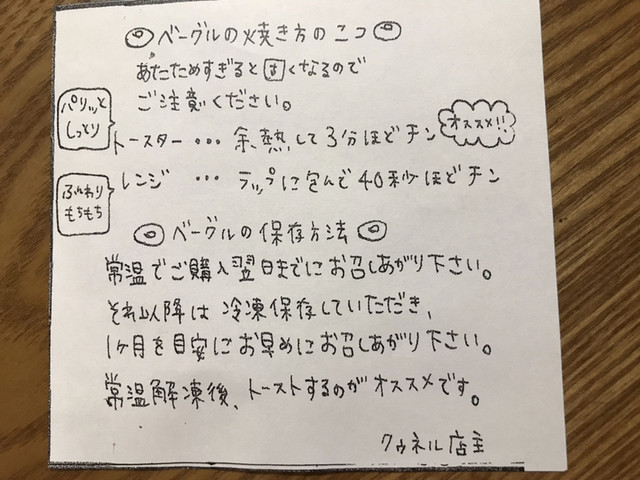 ベーグルの焼き方のコツ
あたためすぎると固くなるので
ご注意ください。
パリッと
しっとり
トースター・・・余熱して3分ほどチン
オススメ!!
ふんわり
もちもち
レンジ ・・・ ラップに包んで40秒ほどチン
ベーグルの保存方法
常温でご購入翌日までにお召しあがり下さい。
それ以降は冷凍保存していただき、
1ヶ月を目安にお早めにお召しあがり下さい。
常温解凍後、トーストするのがオススメです。
クゥネル店主